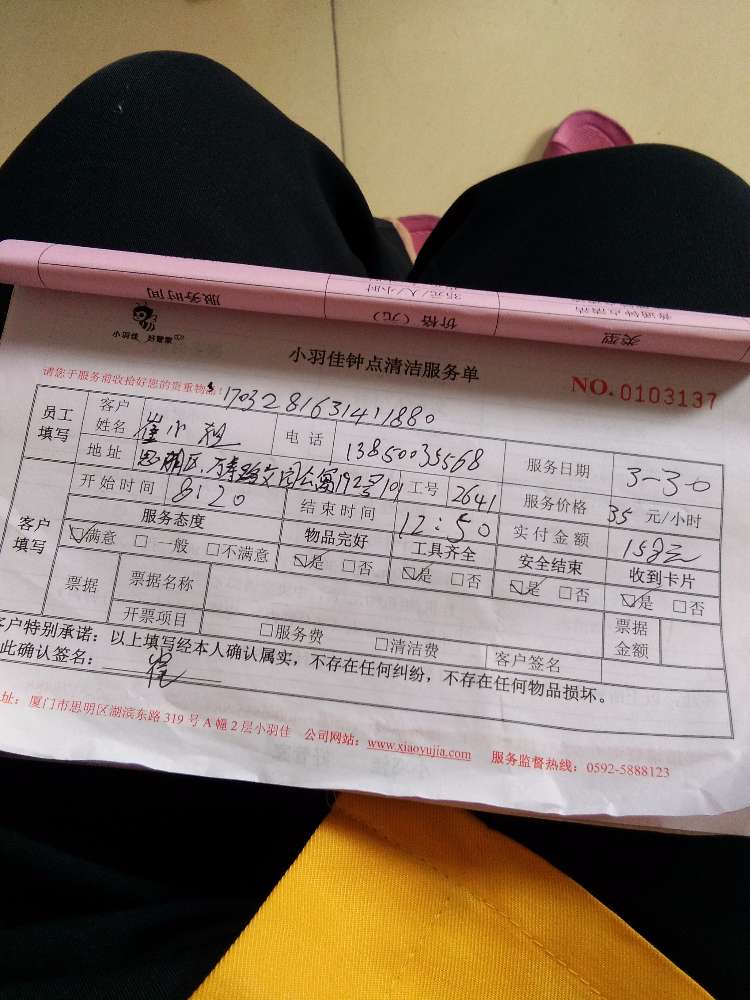 服务时间 35元/人/小时 价格（元） 普通钟点清洁 类型
小羽佳 好管家
小羽佳钟点清洁服务单
NO.0103137
请您于服务前收拾好您的贵重物品！
170328163141880
员工填写 客户姓名 崔小姐 电话 13850035568 服务日期 3-30
地址 思明区.万寿路文园公寓192号101 工号 2641 服务价格 35 元/小时
客户填写 开始时间 8:20 结束时间 12:50 实付金额 158元
服务态度 物品完好 工具齐全 安全结束 收到卡片
☑满意 □一般 □不满意 ☑是 □否 ☑是 □否 ☑是 □否 ☑是 □否
票据 票据名称 票据金额
开票项目 □服务费 □清洁费 客户签名
客户特别承诺：以上填写经本人确认属实，不存在任何纠纷，不存在任何物品损坏。
此确认签名： 崔
址：厦门市思明区湖滨东路319号A幢2层小羽佳 公司网站：www.xiaoyujia.com 服务监督热线：0592-5888123